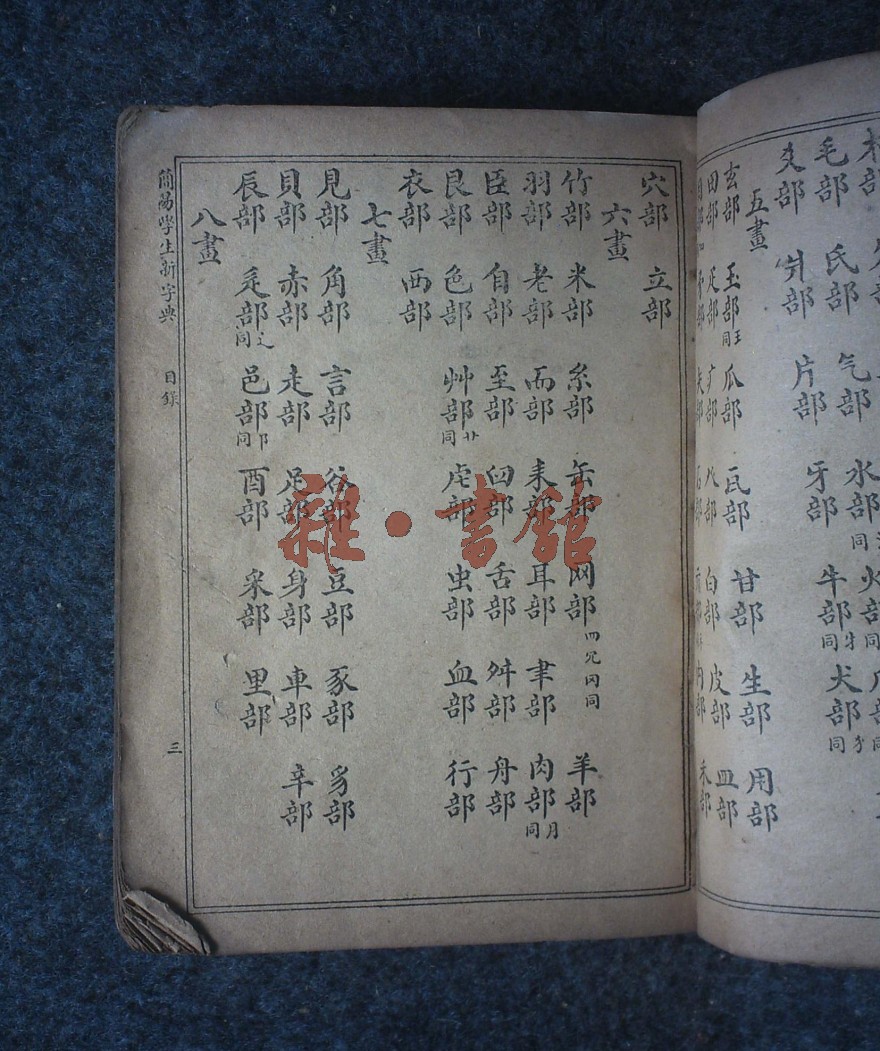 毛部 氏部 气部 水部 同 火部 同
爻部 爿部 片部 牙部 牛部 牜同 犬部 犭同
五畫
玄部 玉部 王同 瓜部 瓦部 甘部 生部 用部
田部 疋部 疒部 癶部 白部 皮部 皿部
石部 禾部
穴部 立部
六畫
竹部 米部 糸部 缶部 网部 罒冗冈同 羊部
羽部 老部 而部 耒部 耳部 聿部 肉部 月同
臣部 自部 至部 臼部 舌部 舛部 舟部
艮部 色部 艸部 廾同 虍部 虫部 血部 行部
衣部 西部
七畫
見部 角部 言部 谷部 豆部 豕部 豸部
貝部 赤部 走部 足部 身部 車部 辛部
辰部 辵部 辶同 邑部 阝同 酉部 釆部 里部
八畫
簡易學生新字典 目錄 三
雜·書館